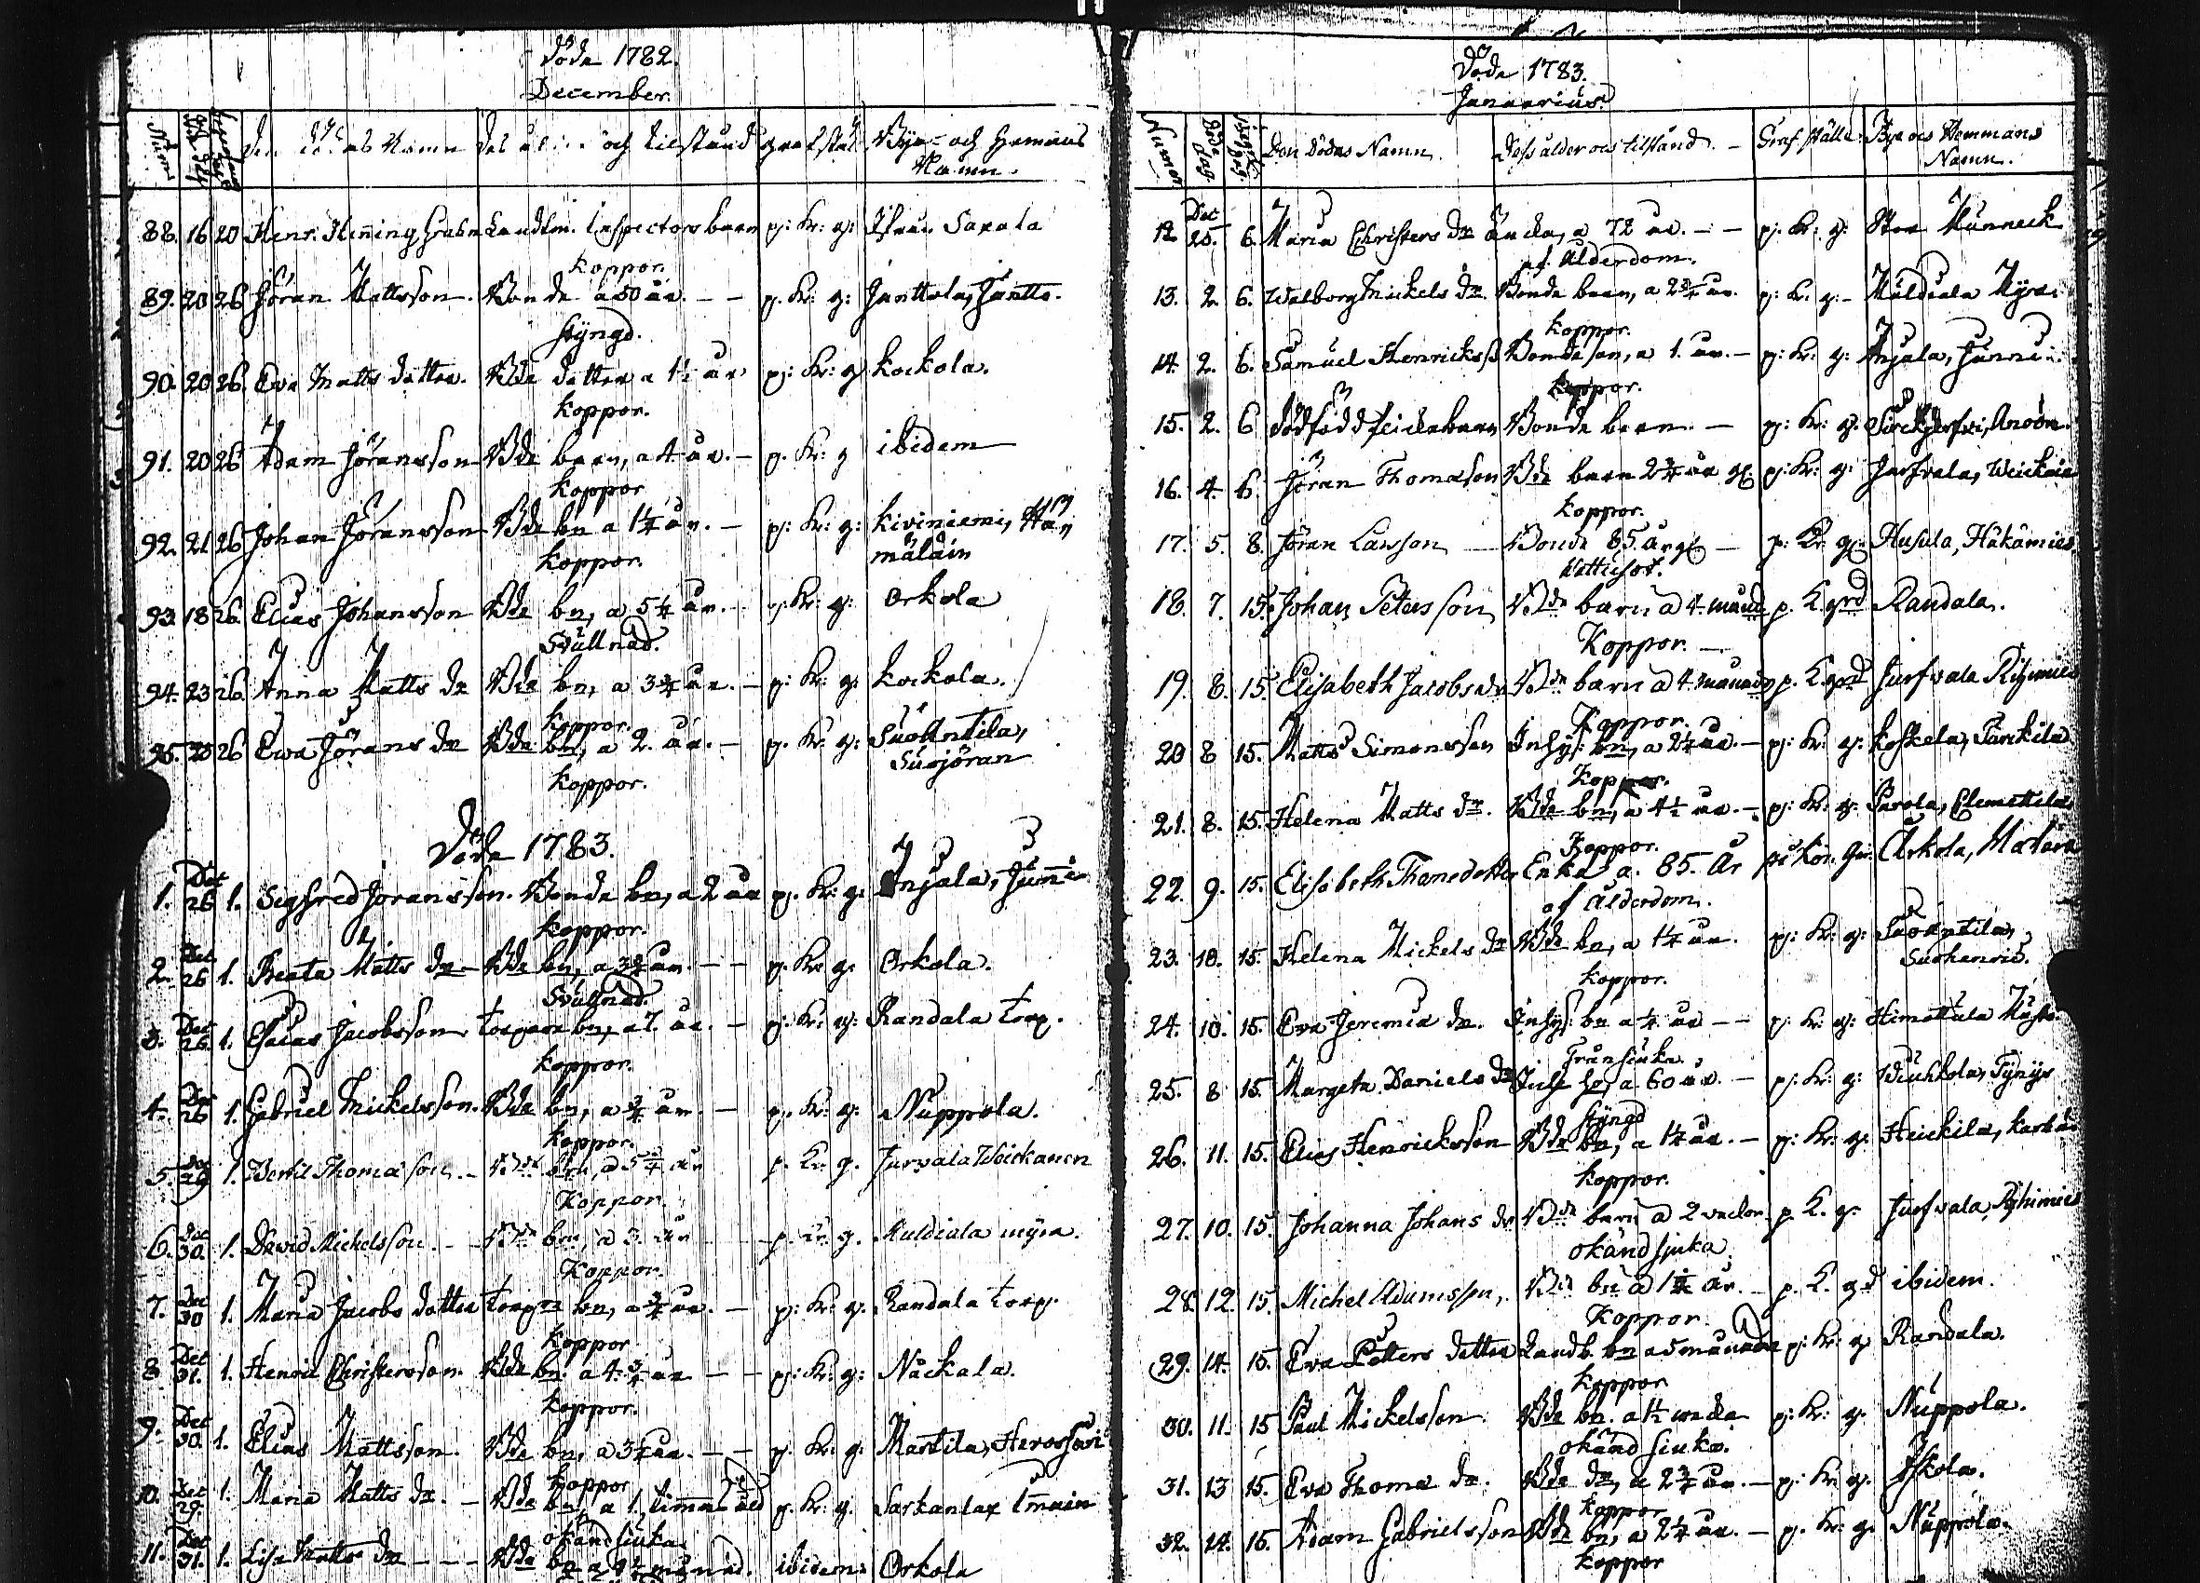 Döde 1782.
December.
Den dödas Namn Des ålder och tilstånd grafställ Bys- och Hemans
Namn.
88. 16 20 Henr. Hening Landtm. Inspectors barn p: Kr: g: Sarala
koppor.
89. 20 26 Jöran Mattsson. Bonde a 50 år. - - p. Kr: g: Janttola, Jantto.
styngd.
90. 20 26. Eva Matts dotter. Bde dotter a 1½ år p: Kr: g kockola.
koppor.
91. 20 26 Adam Jöransson Bde barn, a 4 år. - p. Kr: g ibidem
koppor
92. 21 26 Johan Jöransson Bde bn a 1¼ år. - p: Kr: g: kiviniemi, Hä
mäläin
koppor.
93. 18 26. Elias Johansson Bde bn, a 5¼ år. - p: Kr: g: Orkola
Svullnad.
94. 23 26. Anna Matts dr Bde bn, a 3¾ år. - p: Kr: g: kockola.
koppor.
95. 20 26 Ewa Jörans dr Bde bn, a 2. år. - p. Kr: g: Suo Antila,
Suojöran
koppor.
Döde 1783.
1. Dec 26 1. Sigfred Joransson. Bonde bn, a 2 år p: Kr: g: Anjala, Junni
koppor.
2. Dec 26 1. Beata Matts dr - Bde bn, a 3¾ år. - - p. Kr: g: Orkola.
Svullnad.
3. Dec 26. 1. Esaias Jacobsson torpare bn, a 7. år. - p: Kr: g: Randala torp.
koppor.
4. Dec 26 1. Gabriel Mickelsson. Bde bn, a ¾ år. - p. Kr: g: Nuppola.
koppor.
5. Dec 29 1. Bertil Thomasson. - Bde bn, a 5¾ år p. Kr. g. Jurvala Weickanen
Koppor.
6. Dec 30. 1. David Michelsson. - - Bde bn, a 3. år p. Kr. g. Muldiala myra.
Koppor.
7. Dec 30 1. Maria Jacobs dotter torpre bn, a ¾ år. - p: Kr: g: Randala torp.
koppor
8 Dec 31. 1. Henric Christersson. Bde bn. a 4¾ år - - p: Kr: g: Näckala.
koppor.
9. Dec 30. 1. Elias Mattsson. Bde bn, a 3¼ år. - - p. Kr: g: Martila, Herossari
koppor
10. Dec 29. 1. Maria Matts dr. - Bde bn, a 1. timma p. Kr: g. Sarkanlax
okänd siuka.
11. Dec 31. 1. Lisa Matts dr - - - Bde bn a månad. ibidem: Orkola
Döde 1783.
Januarius.
Numer Döde dag. Den Dödas Namn. Dess ålder och tilstånd. - Graf ställe Bys och Hemmans
Namn.
12. Dec 25. 6. Maria Christers dr änka, a 72 år. - - p: Kr: g: Stor Munneck
af Ålderdom.
13. 2. 6. Walborg Mickels dr Bonde barn, a 2¾ år. p: Kr. g: - Muldiala Myra.
koppor.
14. 2. 6. Samuel Henrickss Bonde son, a 1. år. - p: Kr: g: Anjala, Junni
koppor.
15. 2. 6 dödfödd flickebarn Bonde barn. - p: Kr: g: Sirckjerfvi,
16. 4. 6. Jöran Thomasson Bde barn 2¾ år gl: p: Kr: g: Jurfvala, Weickain
koppor.
17. 5. 8. Jöran Larsson - Bonde 85. år gl - p: Kr g: Husula, Häkämies
Vattusot.
18. 7. 15. Johan Peters son Bde barn a 4. månd p. K. grd Randala.
Koppor. -
19. 8. 15. Elisabeth Jacobs dr Bde barn a 4. månader p. K. grd Jurfvala
Koppor.
20 8 15. Matts Simonsson Inhys: bn, a 2¼ år. - p: Kr: g: koskela, Parckila
Koppor.
21. 8. 15. Helena Matts dr. Bde bn, a 4½ år. - p: Kr: g: Parola, Clemettila
Koppor.
22. 9. 15. Elisabeth Thomedotter Enka a. 85. år på Kör. gär. Orkola,
af Ålderdom.
23. 10. 15. Helena Mickels dr Bde bn, a 1¼ år. p: Kr: g: Suo Antila,
Suohenric.
koppor.
24. 10. 15. Eva Jeremia dr. Inhys: bn a ¼ år - - p: Kr: g: Himottula
Trånsiuka.
25. 8 15. Margeta Daniels dr a 60 år. - p: Kr: g: Wiuhkola, Tynys
styngd
26. 11. 15. Elias Henricksson Bde bn, a 1¼ år. - p: Kr: g: Heickila,
koppor.
27. 10. 15. Johanna Johans dr Bde barn a 2 veckor p. K. g. Jurfvala,
okänd sjuka.
28. 12. 15. Michel Adamsson, Bde bn a 1¾ år. - p. K. gd ibidem.
Koppor.
29. 14. 15. Eva Petters dotter Landb. bn a 5 månader p: Kr: g: Randala.
koppor
30. 11. 15 Paul Mickelsson. Bde bn. a 1½ vecka p: Kr: g: Nuppola.
okänd siuka.
31. 13 15. Eva Thoma dr. Bde dr, a 2¾ år. - p: Kr: g.
koppor
32. 14. 15. Adam Gabrielsson Bde bn, a 2¼ år. - p. Kr: g. Nuppola.
koppor